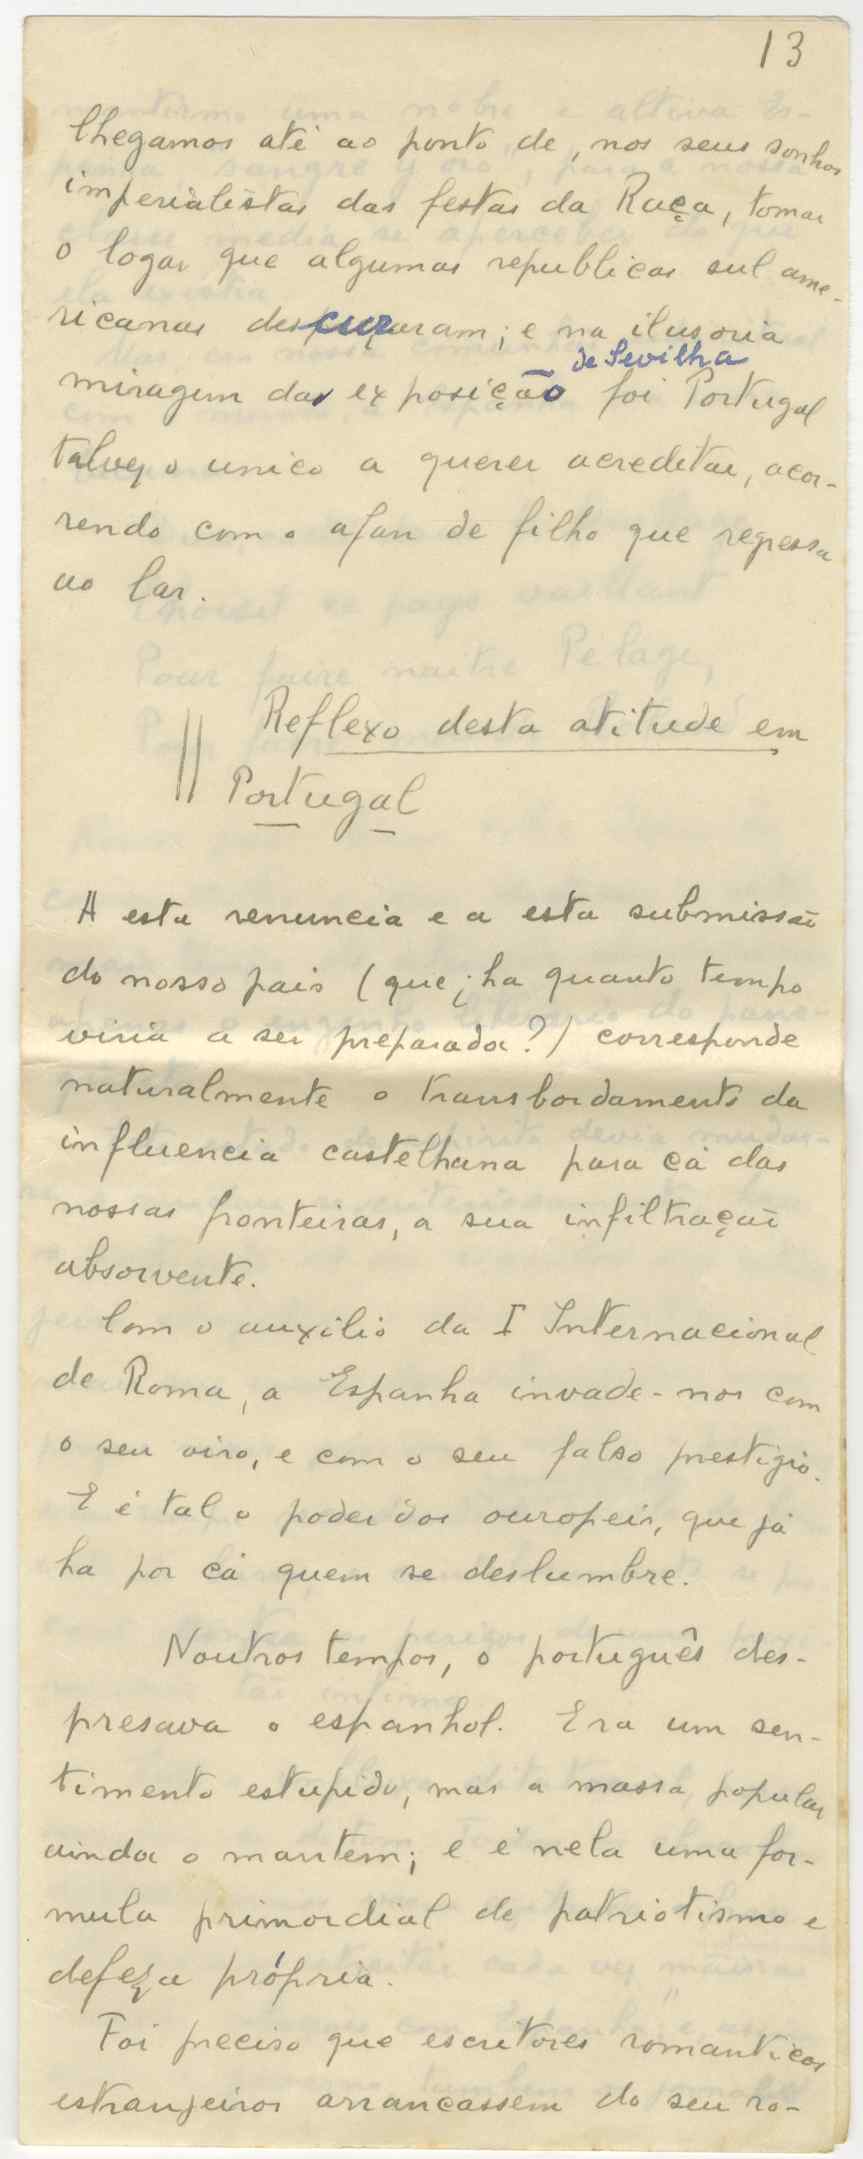 13
Chegamos até ao ponto de, nos seus sonhos
imperialistas das festas da Raça, tomar
o logar que algumas republicas sul ame-
ricanas descuraram; e na ilusoria
de Sevilha
miragem da exposição foi Portugal
talvez o unico a querer acreditar, acor-
rendo com o afan de filho que regressa
ao lar.
Reflexo desta atitude em
Portugal
A esta renuncia e a esta submissão
do nosso pais (que ¡ha quanto tempo
viria a ser preparada?) corresponde
naturalmente o transbordamento da
influencia castelhana para cá das
nossas fronteiras, a sua infiltração
absorvente.
Com o auxilio da I Internacional
de Roma, a Espanha invade-nos com
o seu oiro, e com o seu falso prestigio.
E é tal o poder dos ouropeis, que já
ha por cá quem se deslumbre.
Noutros tempos, o português des-
presava o espanhol. Era um sen-
timento estupido, mas a massa popular
ainda o mantem; e é nela uma for-
mula primordial de patriotismo e
defeza própria.
Foi preciso que escritores romanticos
estranjeiros arrancassem do seu ro-